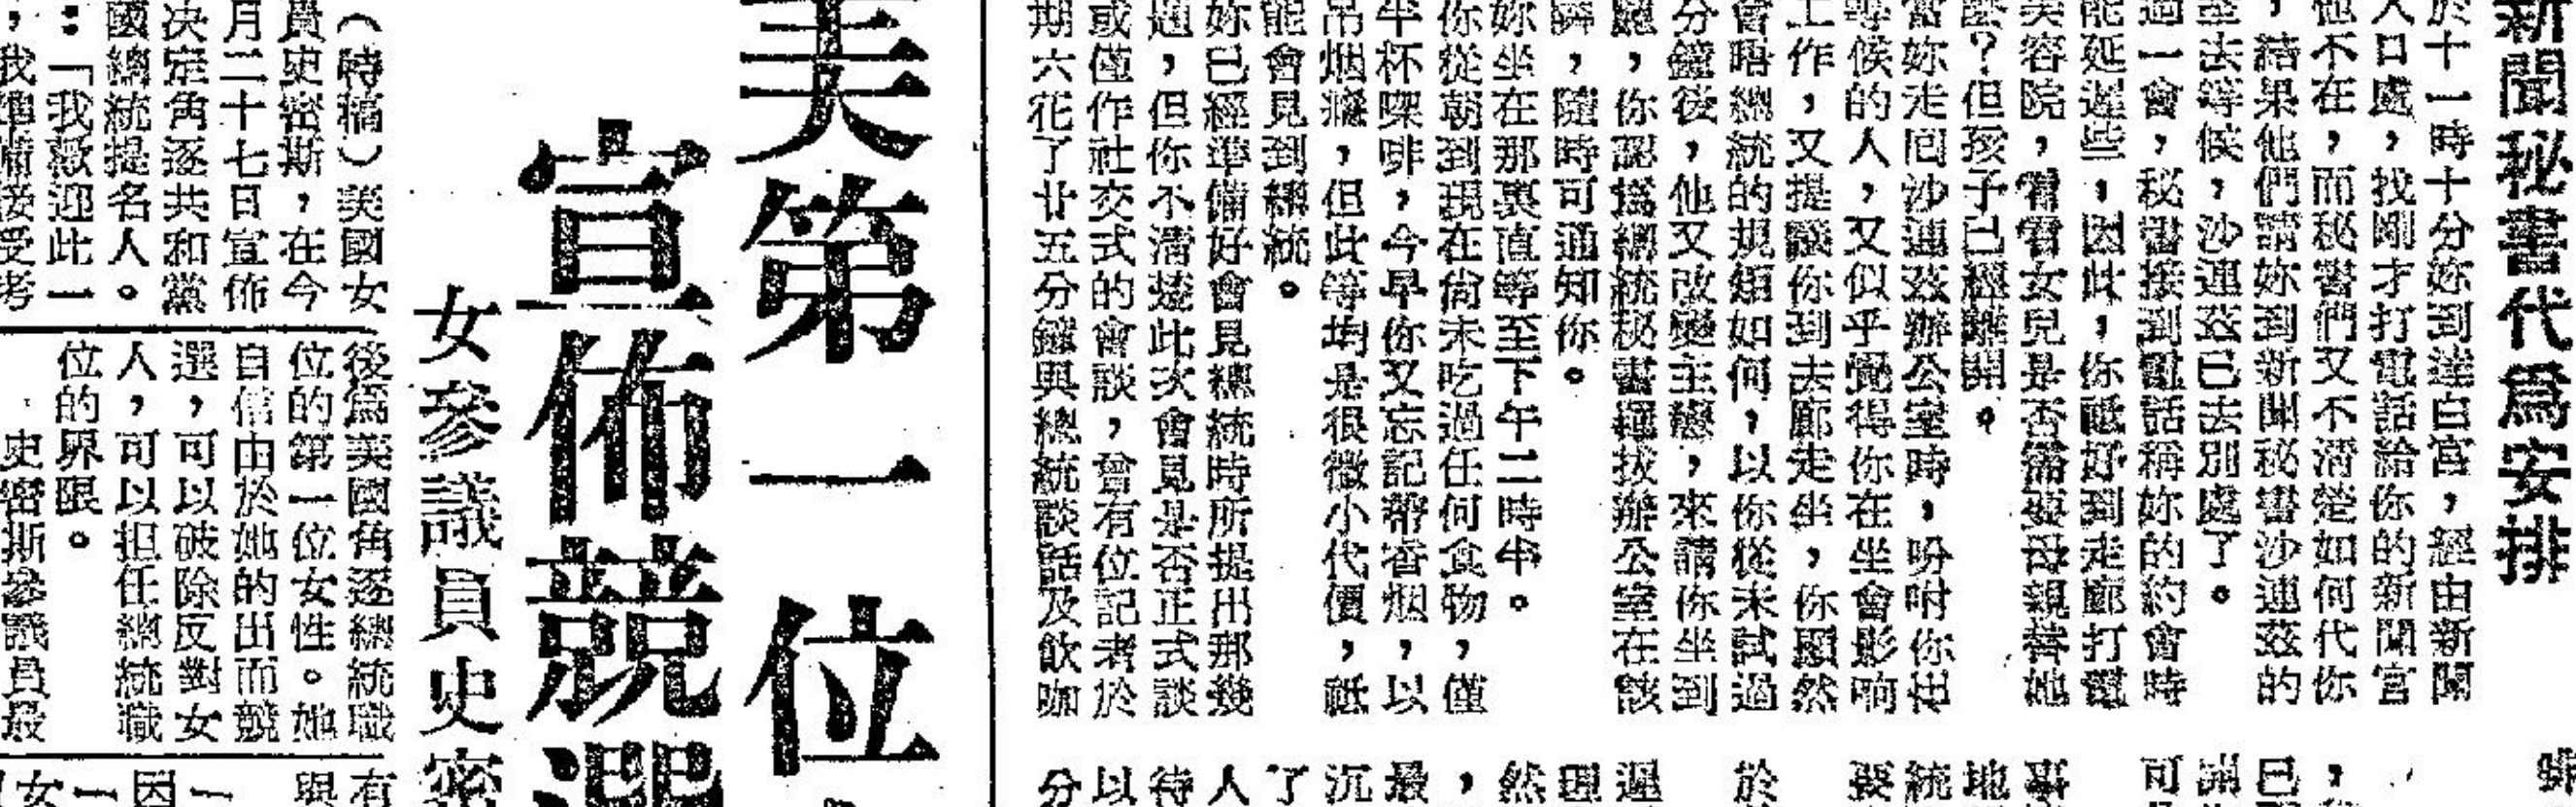 新聞秘書代爲安排
於十一時十分妳到達白宮，經由新聞
入口處，找剛才打電話給你的新聞官
他不在，而秘書們又不清楚如何代你
，結果他們請妳到新聞秘書沙連茲的
室去等候，沙連茲已去別處了。
過一會，秘書接到電話稱妳的約會時
能延遲些，因此，你祗好到走廊打電
美容院，看看女兒是否需要母親替她
麼？但孩子已經離開。
當妳走回沙連茲辦公室時，吩咐你出
等候的人，又似乎覺得你在坐會影响
工作，又提議你到去廊走坐，你顯然
會晤總統的規矩如何，以你從未試過
分鐘後，他又改變主意，來請你坐到
廳，你認爲總統秘書運拔辦公室在該
隣，隨時可通知你。
妳坐在那裏直等至下午二時半。
你從朝到現在尙未吃過任何食物，僅
半杯㗎啡，今早你又忘記帶香烟，以
吊烟癮，但此等均是很微小代價，祗
能會見到總統。
妳已經準備好會見總統時所提出那幾
題，但你不清楚此次會見是否正式談
或僅作社交式的會談，曾有位記者於
期六花了廿五分鐘與總統談話及飲咖
錦
，
已
可
事
地
統
要
於
過
理
然
，
最
沉
了
人
待
以
分
美第一位
宣佈競選
女參議員史密
（特稿）美國女
員史密斯，在今
月二十七日宣佈
决定角逐共和黨
國總統提名人。
：「我歡迎此一
，我準備接受考
後爲美國角逐總統職
位的第一位女性。她
自信由於她的出而競
選，可以破除反對女
人，可以担任總統職
位的界限。
史密斯參議員最
有
與
一
因
一
女